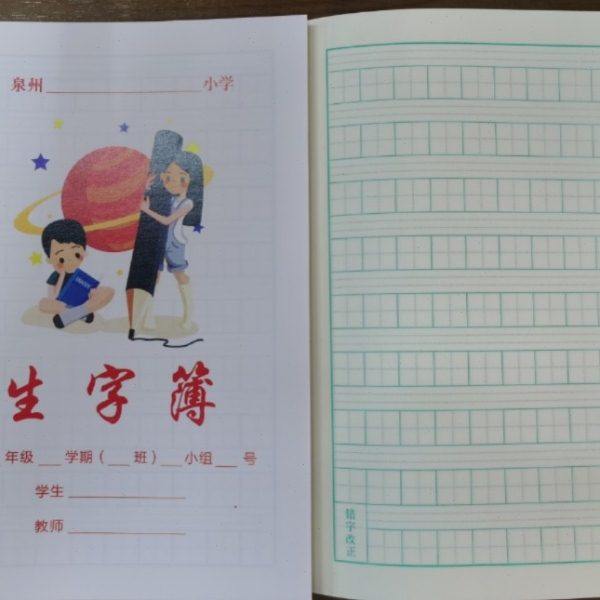 泉州________________小学
生字簿
年级___学期(___班)___小组___号
学生____________
教师____________
错字改正